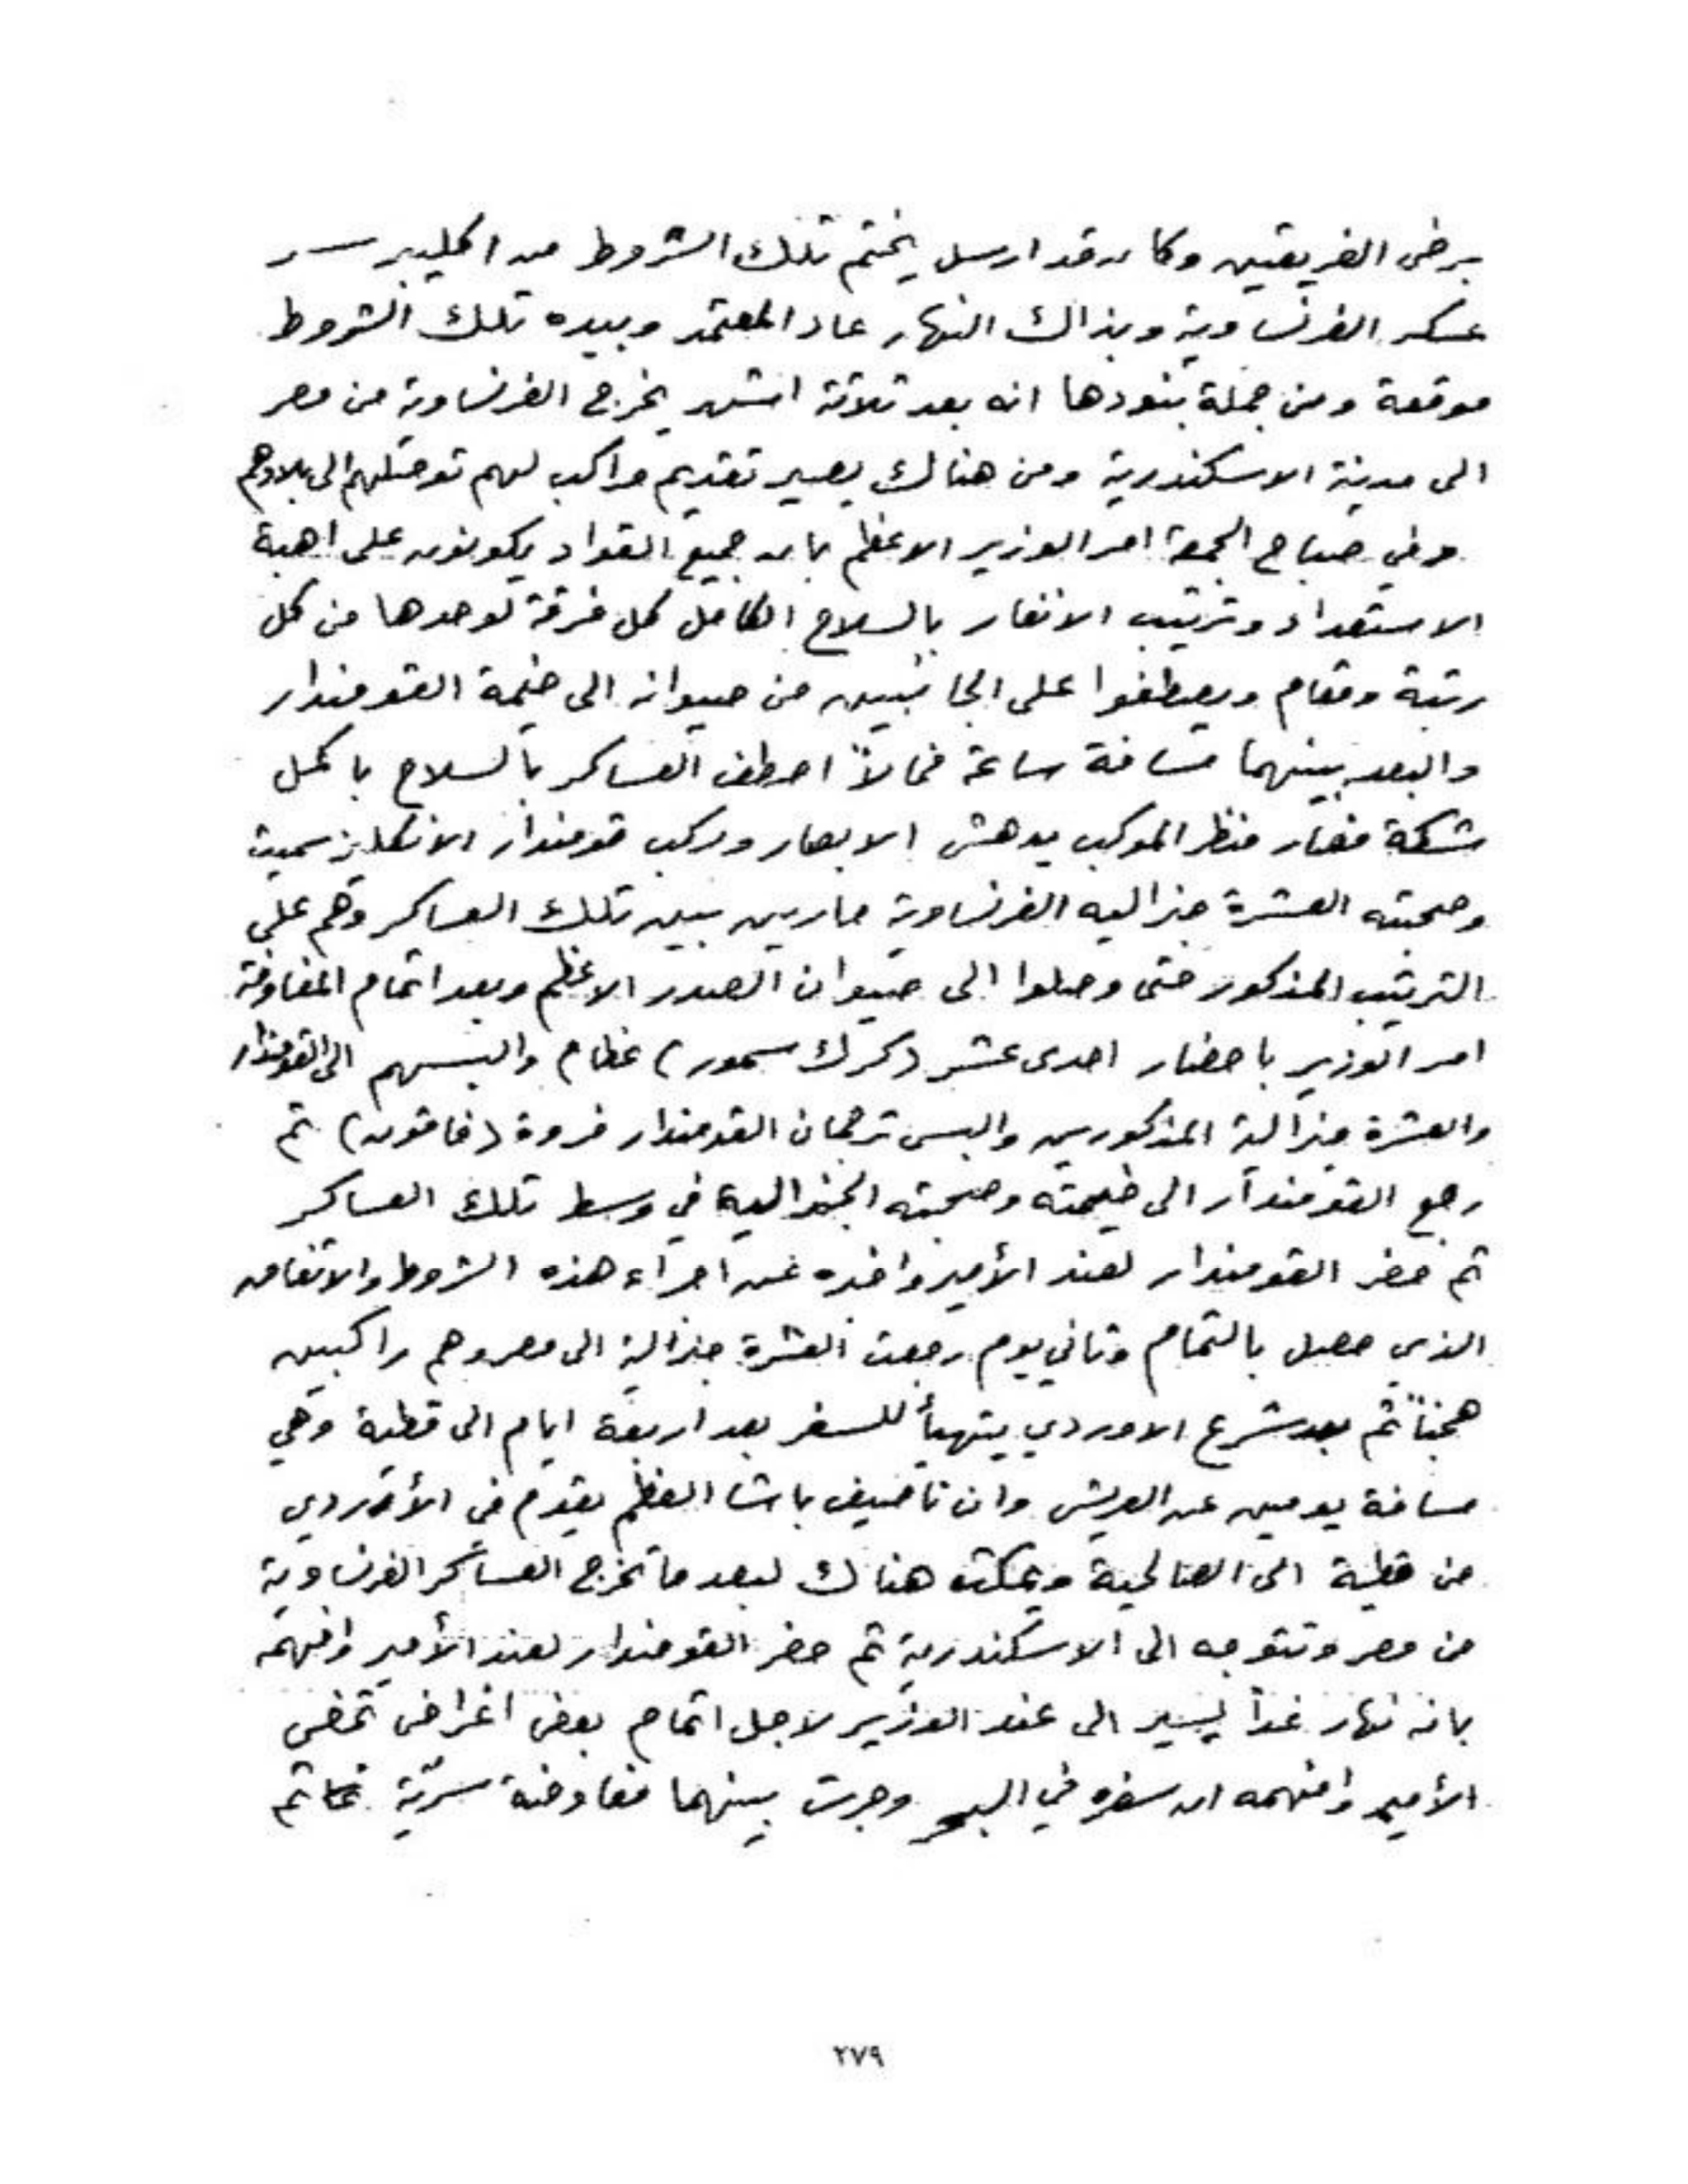 برضى الفريقين وكان قد ارسل يختم تلك الشروط من اكليبر سر
عسكر الفرنساوية وبذاك النهار عاد المعتمد وبيده تلك الشروط
موقعة ومن جملة بنودها انه بعد ثلاثة اشهر يخرج الفرنساوية من مصر
الى مدينة الاسكندرية ومن هناك يصير تقديم مراكب لهم توصلهم الى بلادهم
وفي صباح الجمعة امر الوزير الاعظم بان جميع القواد يكونون على اهبة
الاستعداد وترتيب الانفار بالسلاح الكامل كل فرقة لوحدها من كل
رتبة ومقام ويصطفوا على الجانبين من صيوانه الى خيمة القومندار
والبعد بينهما مسافة ساعة فحالاً اصطف العساكر بالسلاح باكمل
شكة فصار منظر الموكب يدهش الابصار وركب قومندار الانكليز سميت
وصحبته العشرة جنراليه الفرنساوية مارين بين تلك العساكر وهم على
الترتيب المذكور حتى وصلوا الى صيوان الصدر الاعظم وبعد اتمام المفاوضة
امر الوزير باحضار احدى عشر (كرك سمور) عظام والبسهم الى القومندار
والعشرة جنرالية المذكورين والبس ترجمان القومندار فروة (قاقون) ثم
رجع القومندار الى خيمته وصحبته الجنرالية في وسط تلك العساكر
ثم حضر القومندار لعند الأمير واخبره عن اجراء هذه الشروط والاتفاق
الذي حصل بالتمام وثاني يوم رجعت العشرة جنرالية الى مصر وهم راكبين
هجناً ثم بعد شرع الاوردي يتهيأ للسفر بعد اربعة ايام الى قطية وهي
مسافة يومين عن العريش وان ناصيف باشا العظم يقدم في الأوردي
من قطية الى الصالحية ويمكث هناك لبعد ما تخرج العساكر الفرنساوية
من مصر وتتوجه الى الاسكندرية ثم حضر القومندار لعند الأمير وافهمه
بانه نهار غداً يسير الى عند الوزير لاجل اتمام بعض اغراض تخص
الأمير وافهمه ان سفره في البحر وجرت بينهما مفاوضة سرّية
٢٧٩